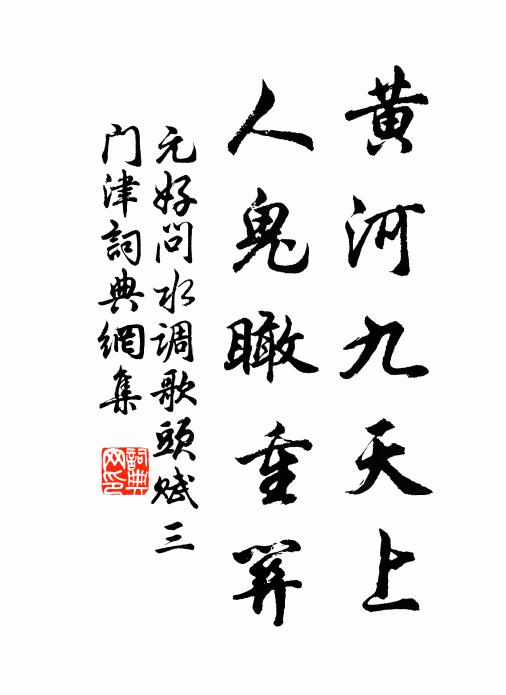 黄河九天上
人鬼瞰重關
元好问水调歌頭赋三
门津詞典網集
詞典网印